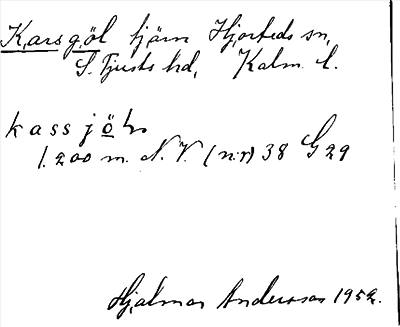 Karsgöl tjärn Hjorteds sn,
S. Tjusts hd, Kalm. l.
kassjöln
1.200 m. N.V. (nr) 38 G 29
Hjalmar Andersson 1952.